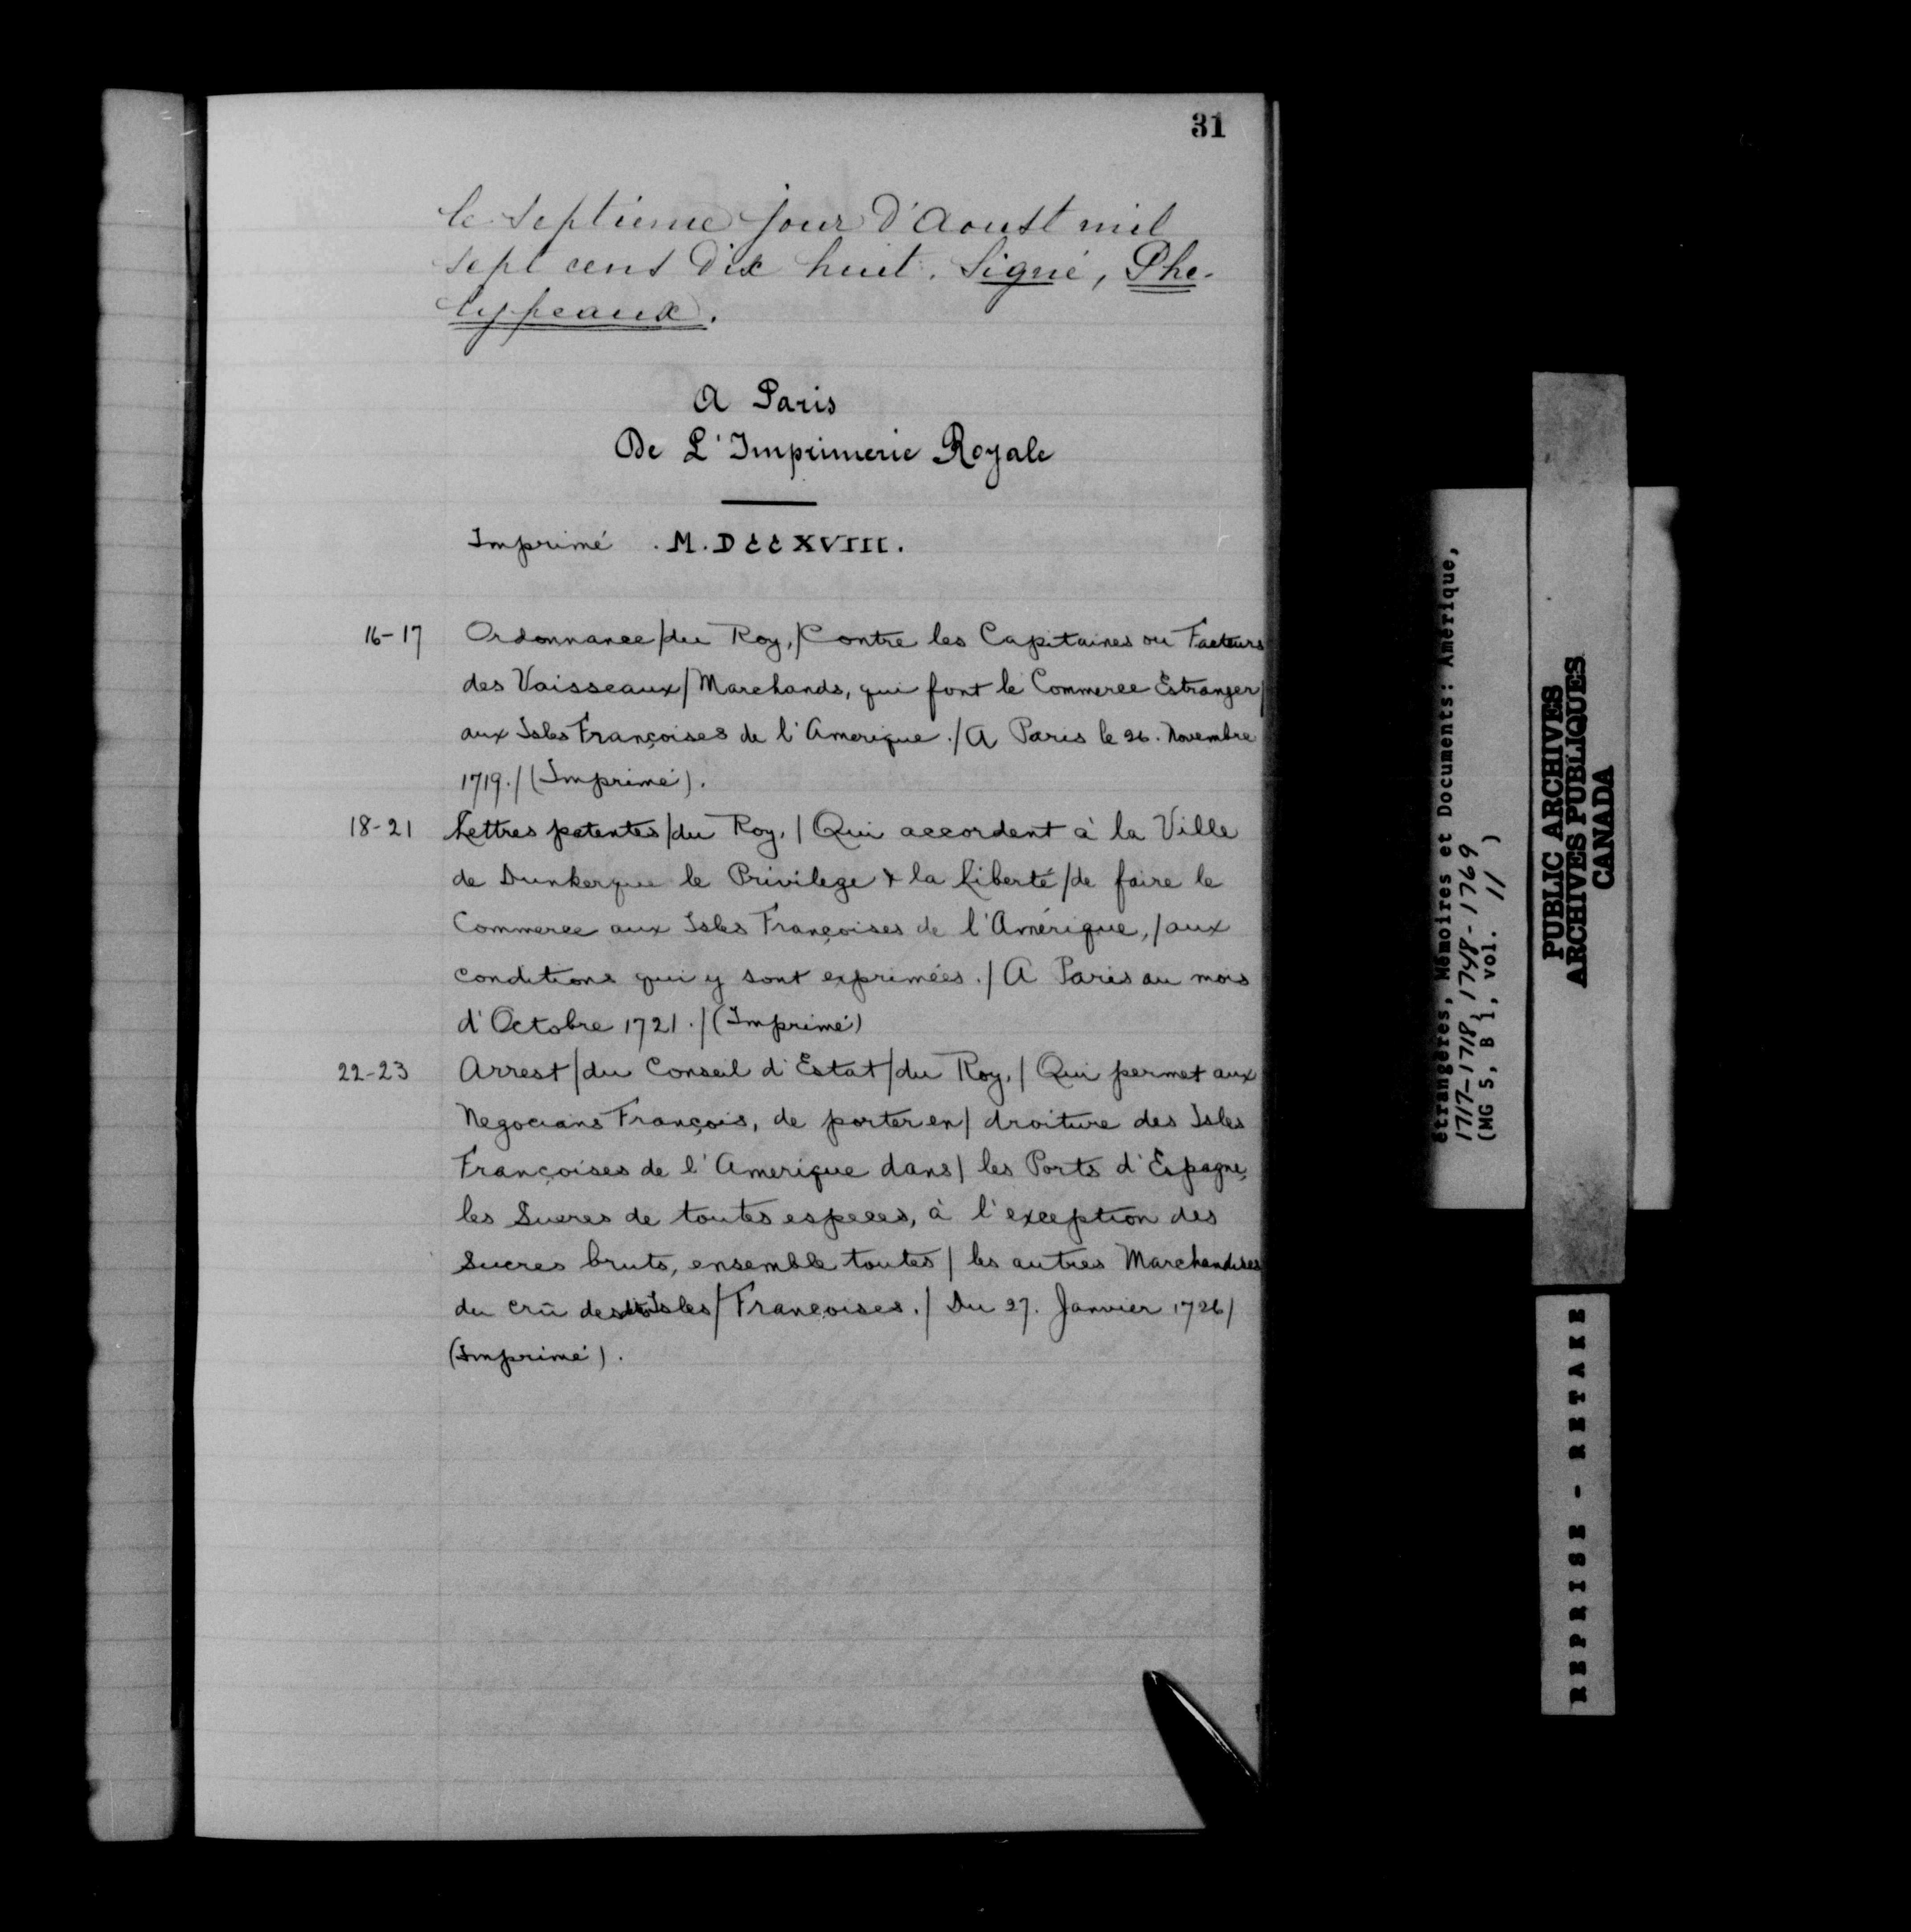 31
le septieme jour d'Aoust mil
sept cent dix huit. Signé, Phe-
lypeaux.
A Paris
De L'Imprimerie Royale
Imprimé . M. DCCXVIII.
16-17 Ordonnance/du Roy,/Contre les Capitaines ou Facteurs
des Vaisseaux/Marchands, qui font le Commerce Estranger/
aux Isles Françoises de l'Amerique./A Paris le 26. Novembre
1719./(Imprimé).
18-21 Lettres patentes/du Roy,/Qui accordent à la Ville
de Dunkerque le Privilege & la Liberté/de faire le
Commerce aux Isles Françoises de l'Amérique,/aux
conditions qui y sont exprimées./A Paris au mois
d'Octobre 1721./(Imprimé)
22-23 Arrest/du Conseil d'Estat/du Roy,/Qui permet aux
Negocians François, de porter en/droiture des Isles
Françoises de l'Amerique dans/les Ports d'Espagne,
les Sucres de toutes especes, à l'exception des
Sucres bruts, ensemble toutes/les autres Marchandises
du crû des Isles/Françoises./Du 27. Janvier 1726/
(Imprimé).
étrangères, Mémoires et Documents: Amérique,
1717-1718, 1748-1769
(MG 5, B 1, vol. 11 )
PUBLIC ARCHIVES
ARCHIVES PUBLIQUES
CANADA
REPRISE - RETAKE